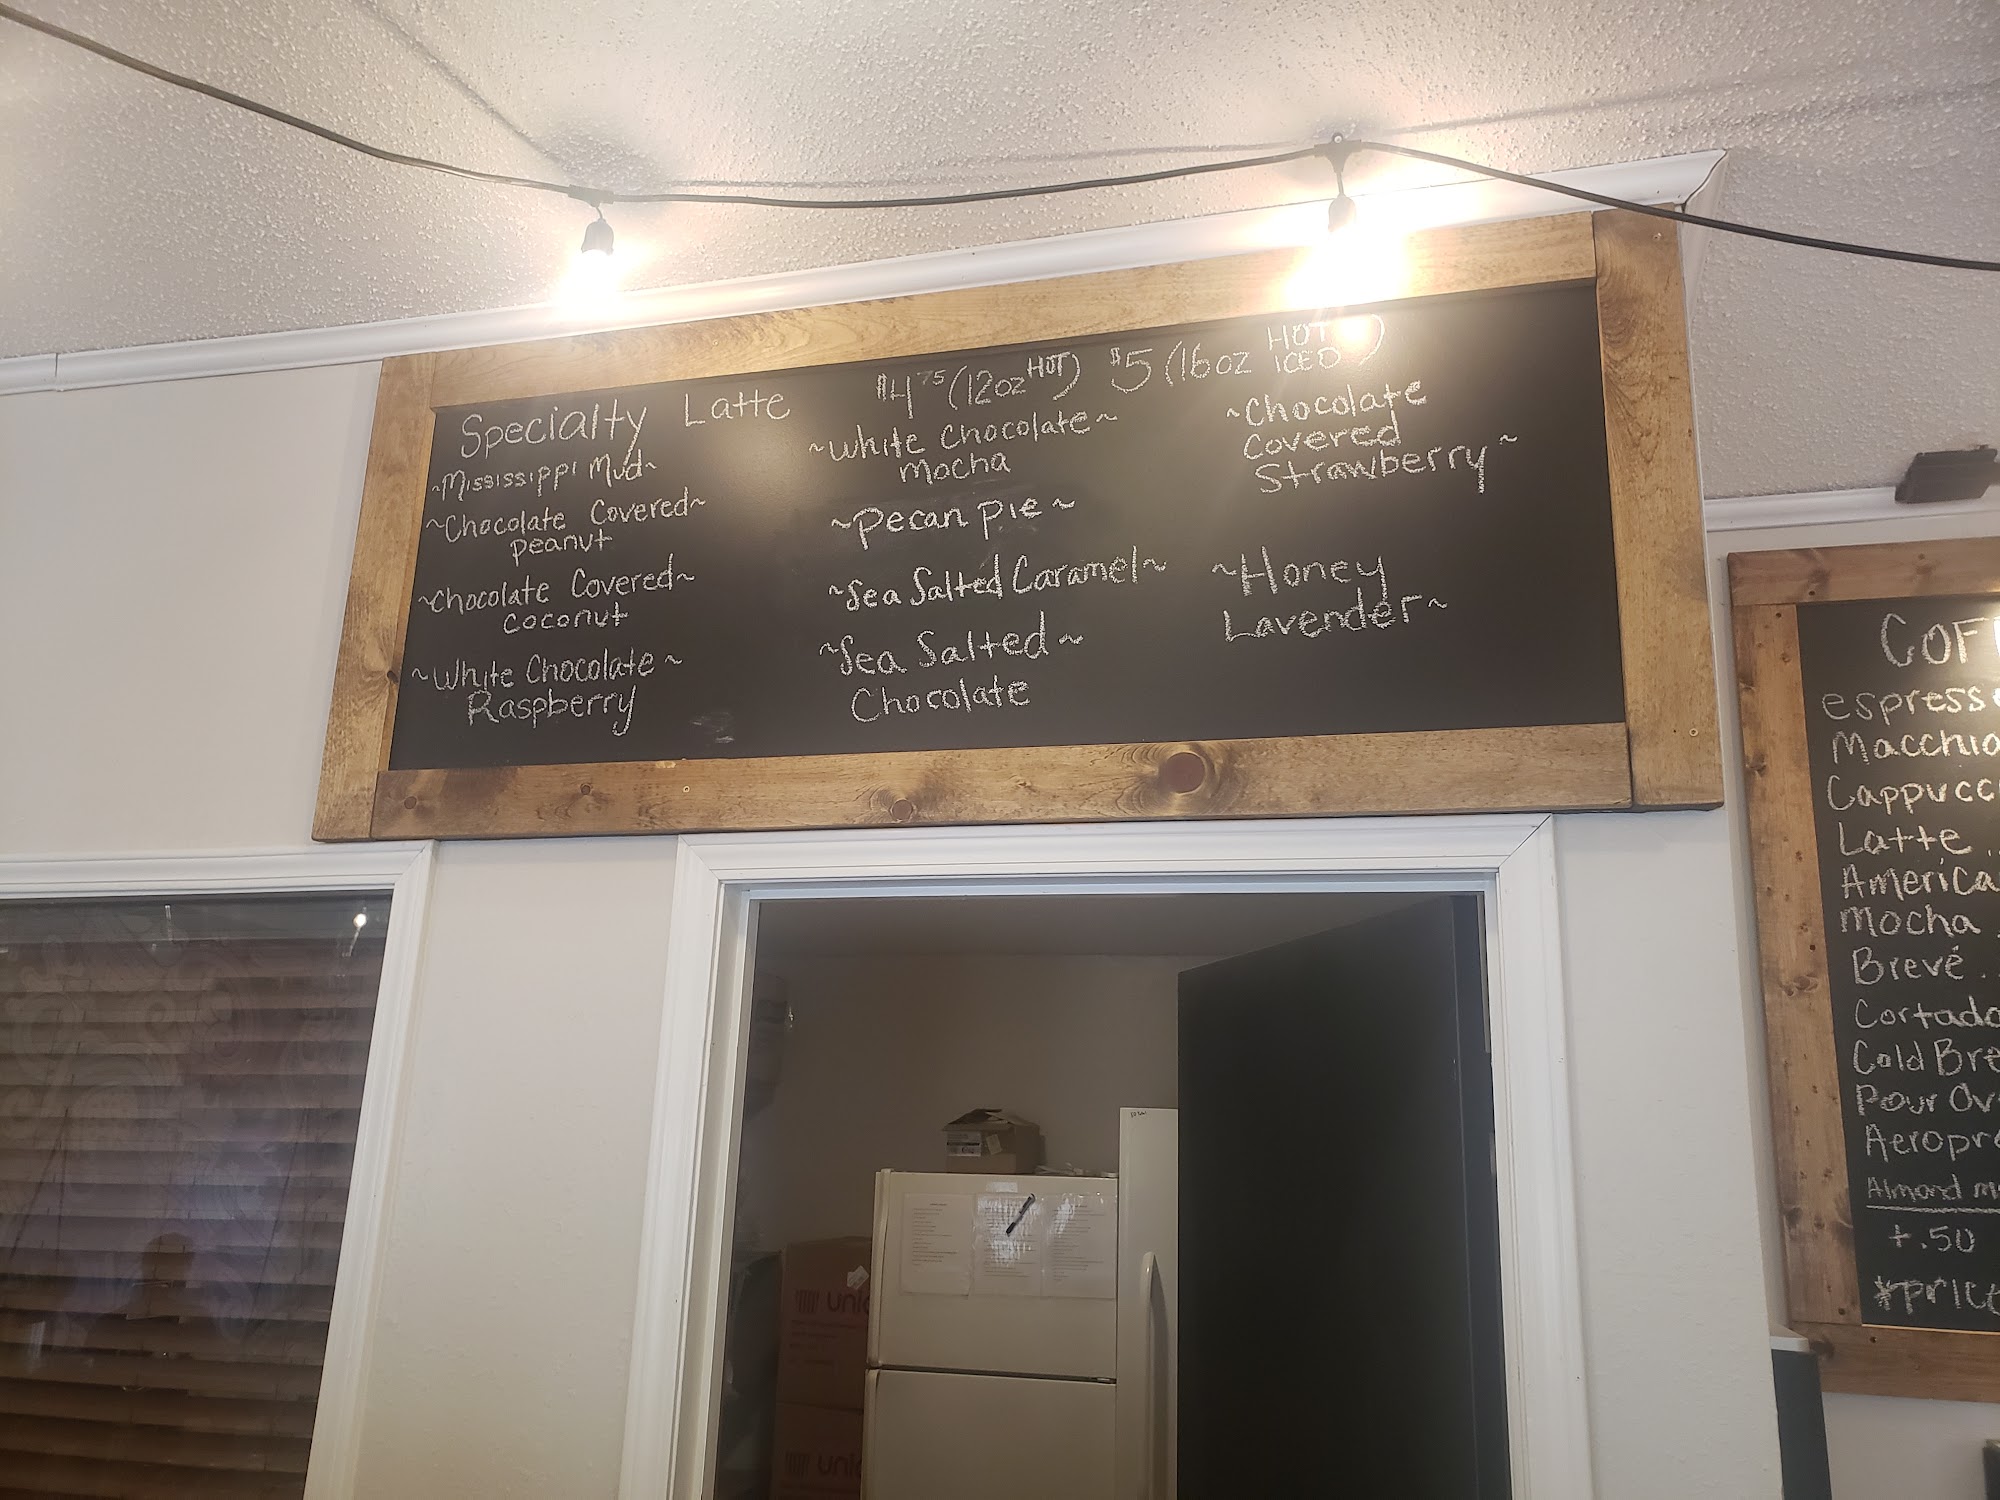 Specialty Latte $4.75 (12oz HOT) $5 (16oz HOT ICED)
~Mississippi Mud~
~Chocolate Covered~
peanut
~Chocolate Covered~
coconut
~White Chocolate~
Raspberry
~White Chocolate~
mocha
~Pecan pie~
~Sea Salted Caramel~
~Sea Salted~
Chocolate
~Chocolate
covered
Strawberry~
~Honey
Lavender~
COF
espress
Macchia
Cappucc
Latte ..
America
Mocha .
Brevé ..
Cortado
Cold Bre
Pour Ov
Aeropre
Almond m
+.50
*price